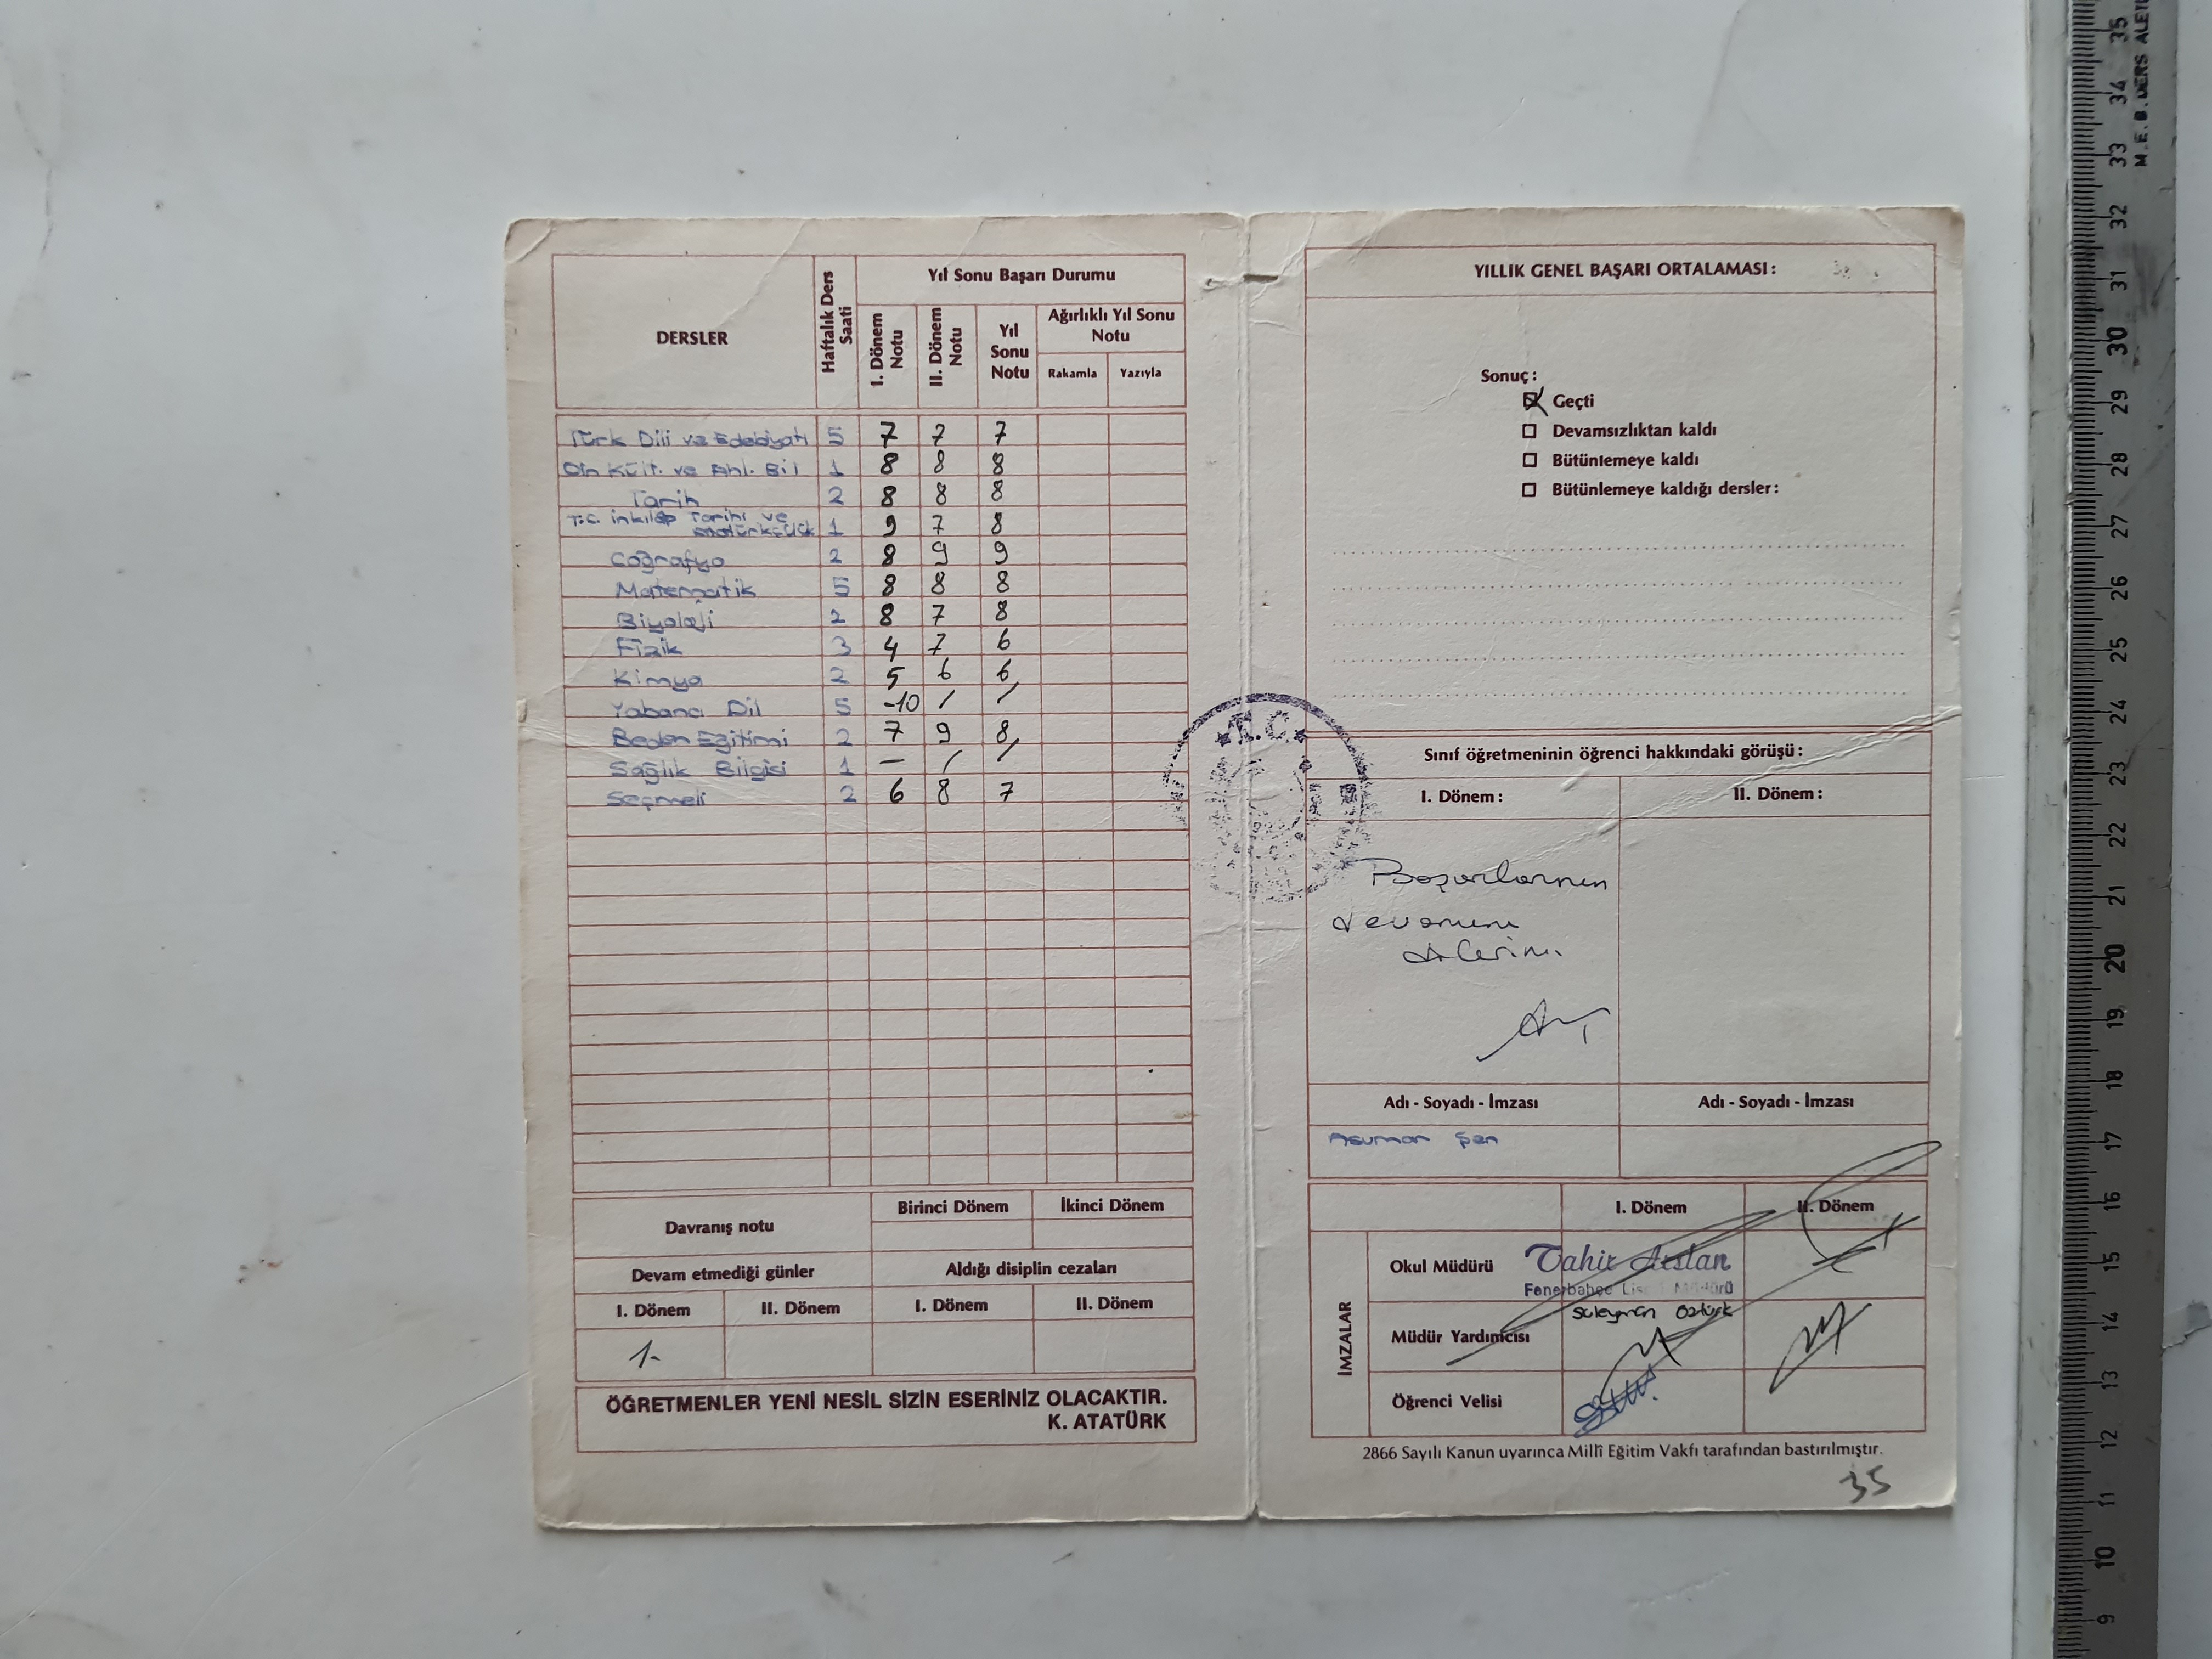 DERSLER
Haftalık Ders Saati
Yıl Sonu Başarı Durumu
I. Dönem Notu
II. Dönem Notu
Yıl Sonu Notu
Ağırlıklı Yıl Sonu Notu
Rakamla
Yazıyla
Türk Dili ve Edebiyatı 5 7 7 7
Din Kült. ve Ahl. Bil 1 8 8 8
Tarih 2 8 8 8
T.C. İnkılap Tarihi ve Atatürkçülük 1 9 7 8
Coğrafya 2 8 9 9
Matematik 5 8 8 8
Biyoloji 2 8 7 8
Fizik 3 4 7 6
Kimya 2 5 6 6
Yabancı Dil 5 -10 / /
Beden Eğitimi 2 7 9 8
Sağlık Bilgisi 1 — / /
Seçmeli 2 6 8 7
Davranış notu
Birinci Dönem
İkinci Dönem
Devam etmediği günler
Aldığı disiplin cezaları
I. Dönem
II. Dönem
I. Dönem
II. Dönem
1-
ÖĞRETMENLER YENİ NESİL SİZİN ESERİNİZ OLACAKTIR.
K. ATATÜRK
YILLIK GENEL BAŞARI ORTALAMASI:
Sonuç:
Geçti
Devamsızlıktan kaldı
Bütünlemeye kaldı
Bütünlemeye kaldığı dersler:
T.C.
Sınıf öğretmeninin öğrenci hakkındaki görüşü:
I. Dönem:
II. Dönem:
Başarılarının
devamını
dilerim.
Adı - Soyadı - İmzası
Adı - Soyadı - İmzası
Asuman Şen
I. Dönem
II. Dönem
İMZALAR
Okul Müdürü
Tahir Arslan
Fenerbahçe Lisesi Müdürü
Müdür Yardımcısı
Süleyman Öztürk
Öğrenci Velisi
2866 Sayılı Kanun uyarınca Millî Eğitim Vakfı tarafından bastırılmıştır.
35
35
34
33
32
31
30
29
28
27
26
25
24
23
22
21
20
19
18
17
16
15
14
13
12
11
10
9
M.E.B. DERS ALETL